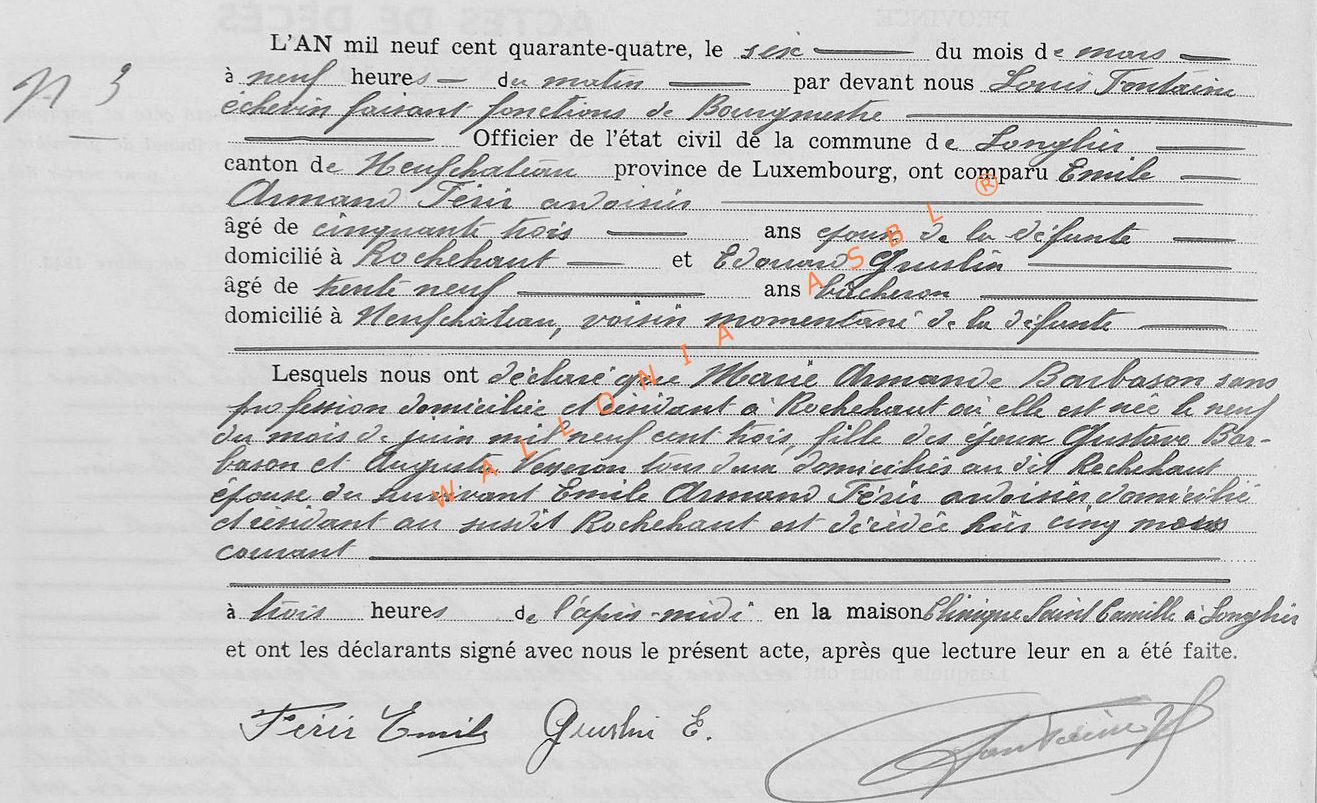 L'AN mil neuf cent quarante-quatre, le six du mois de mars
N 3
à neuf heures du matin par devant nous Louis Fontaine
échevin faisant fonctions de Bourgmestre
Officier de l'état civil de la commune de Longlier
canton de Neufchateau province de Luxembourg, ont comparu Emile
Armand Férir ardoisier
âgé de cinquante trois ans époux de la défunte
domicilié à Rochehaut et Edouard Guslin
âgé de trente neuf ans bûcheron
domicilié à Neufchateau, voisin momentané de la défunte
Lesquels nous ont déclaré que Marie Armande Barbason sans
profession domiciliée et résidant à Rochehaut où elle est née le neuf
du mois de juin mil neuf cent trois, fille des époux Gustave Bar-
bason et Augusta tous deux domiciliés au dit Rochehaut
épouse du survivant Emile Armand Férir ardoisier domicilié
et résidant au susdit Rochehaut est décédée hier cinq mars
courant
à trois heures de l'après-midi en la maison Clinique Saint Camille à Longlier
et ont les déclarants signé avec nous le présent acte, après que lecture leur en a été faite.
Férir Emile Guslin E. Fontaine
WALLONIA ASBL ®